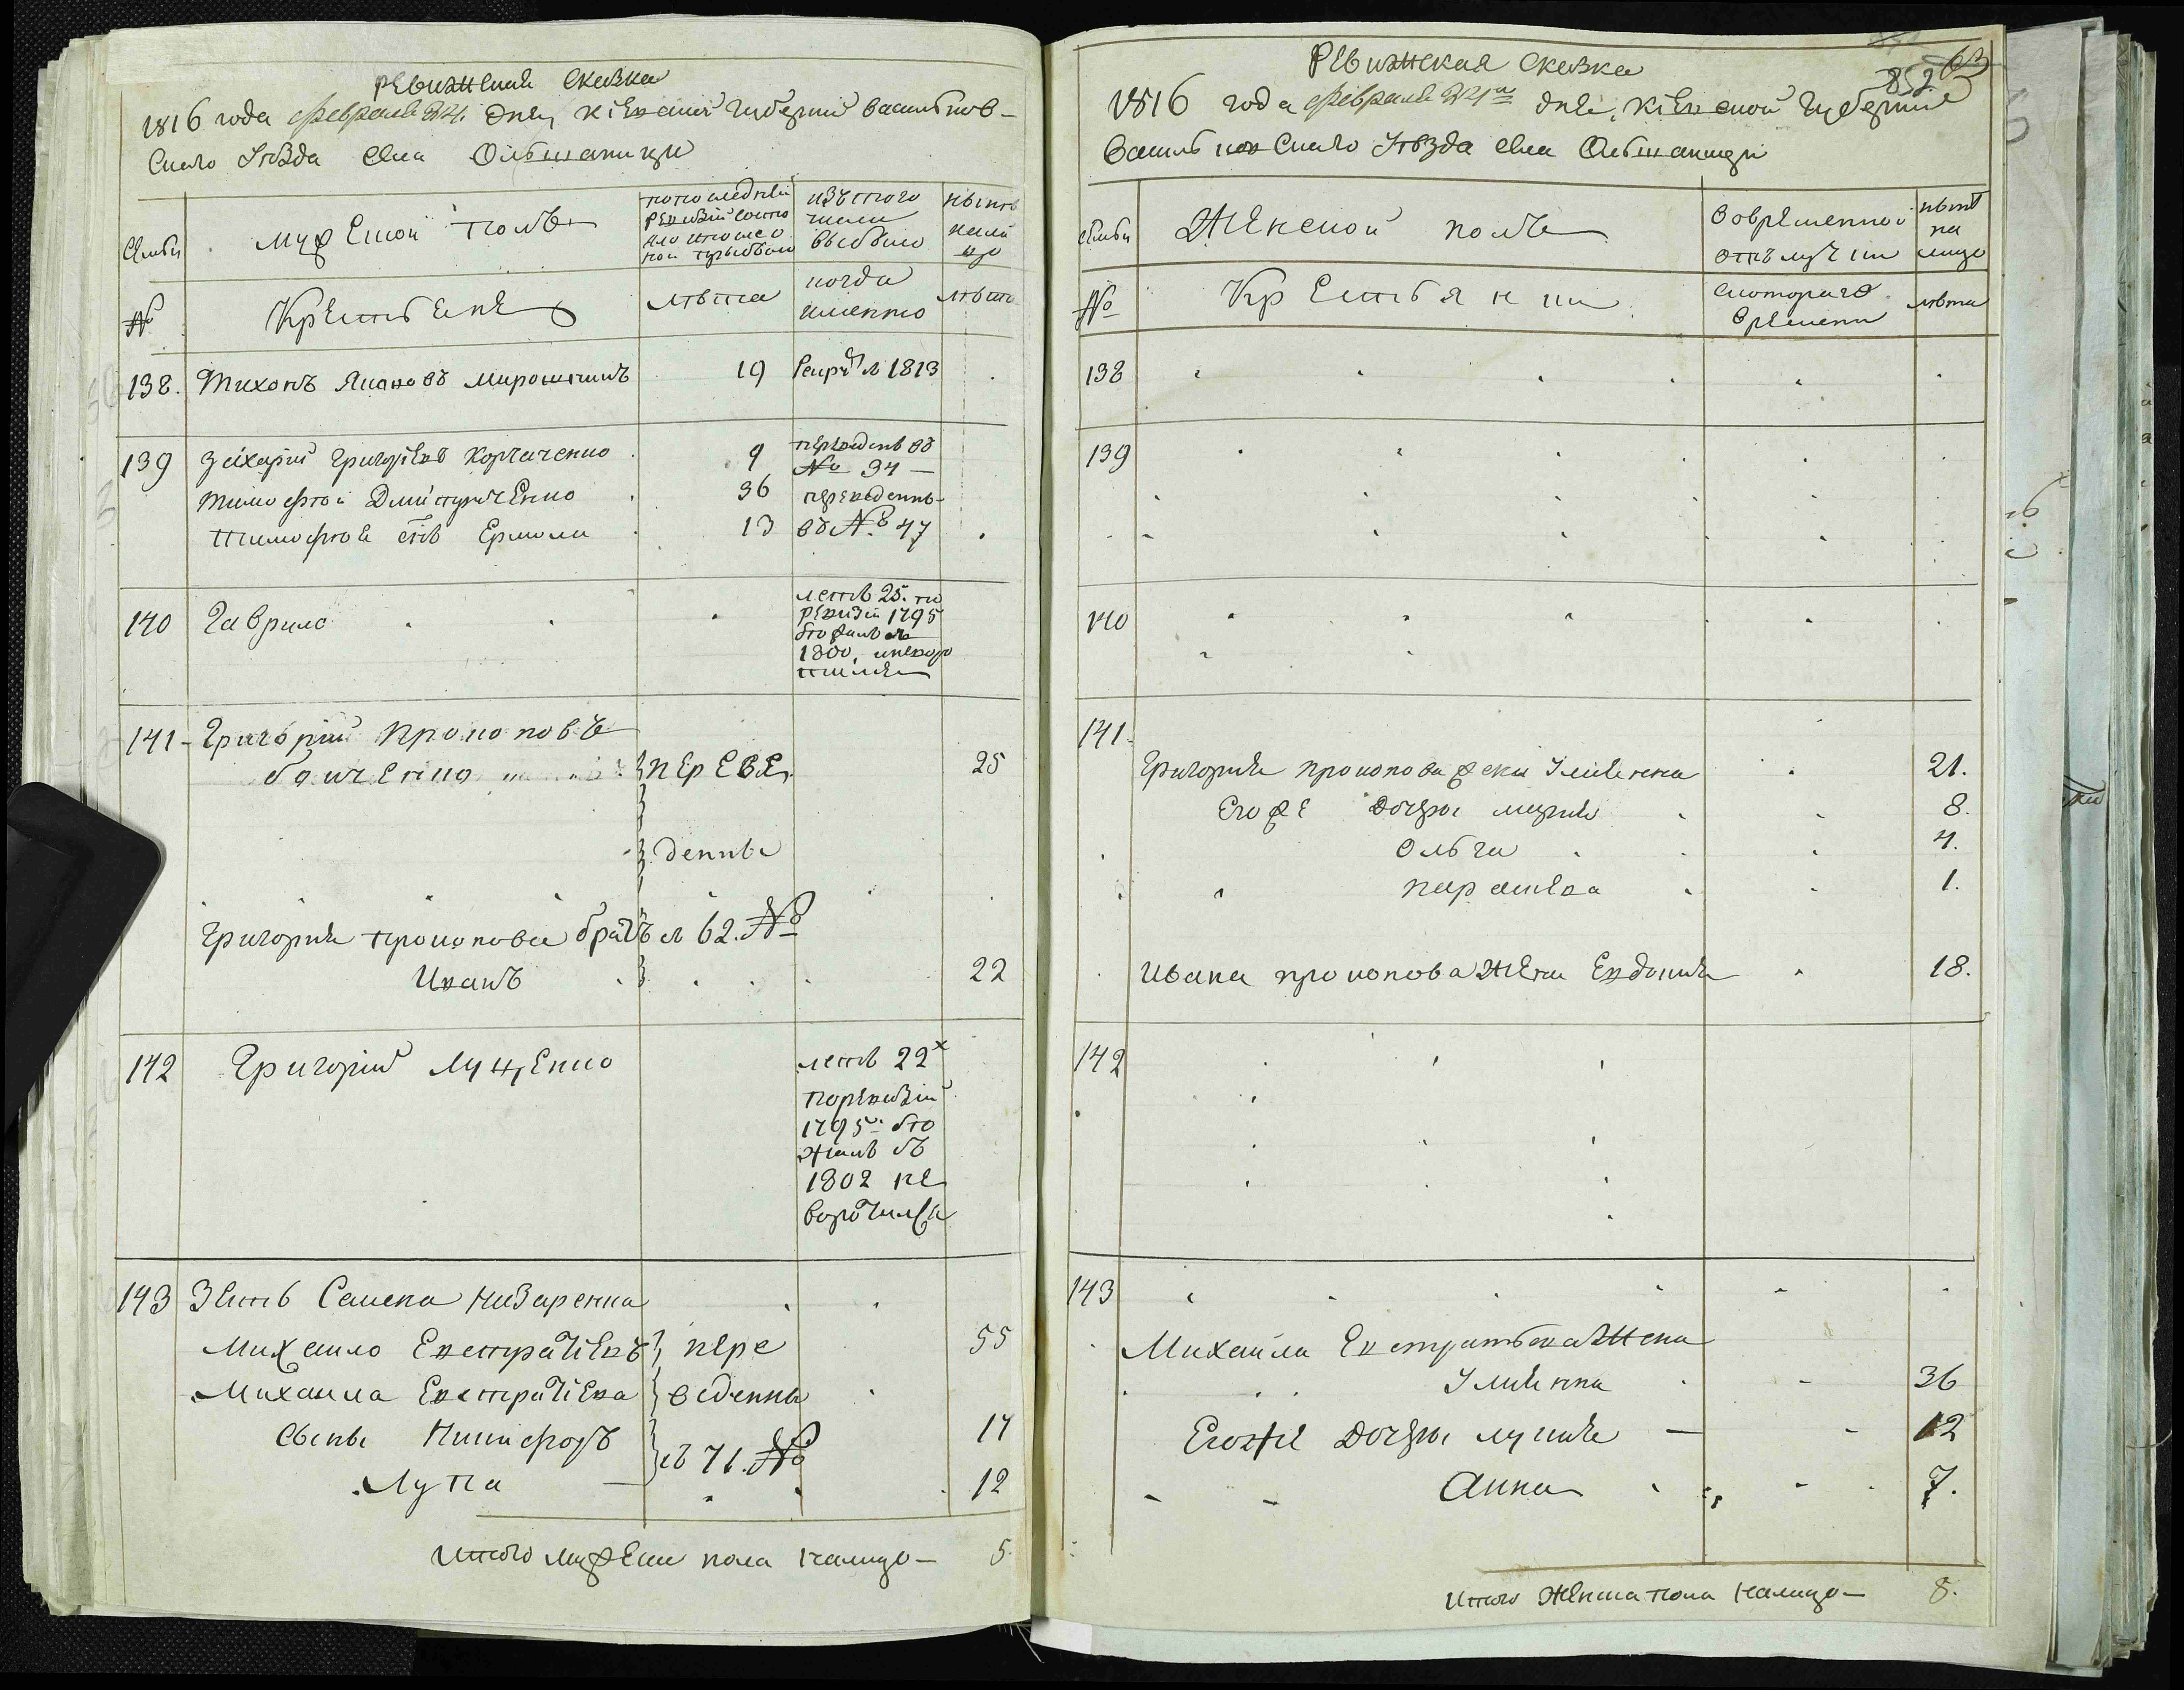 Ревижская сказка
1816 года февраля 24 дня, Кіевской губерніи васильков-
скаго уѣзда села Ольшаницы
Семьи
мужеской полъ
по последней ревизіи состояло и после оной прибыло
изъ того числа выбыло
нынѣ на лицо
№
Крестьяне
лѣта
когда именно
лѣта
138. Тихонъ Яковъ Мирошникъ 19 рекру л 1813
139 Захарій Григоріевъ Корчаченко 9 переведенъ въ № 34 —
Тимофѣй Дмитриченко 36 переведены-
Тимофѣя снъ Ермола 13 въ № 47
140 Гаврило
летъ 25. по
ревизіи 1795
бежалъ
1800, и не воро
тился
141- Григорій Прокоповъ
бойченко переве 25
денны
Григорія прокопова братъ в 62. №
Иванъ 22
142 Григорій Луценко
летъ 22х
по ревизіи
1795: бе
жалъ въ
1802 не
воротился
143 Зять Семена Назаренка
Михаило Евстратіевъ пере 55
Михаила Евстратіева веденны
Сыны Никифоръ 17
въ 71. №
Лука 12
Итого мужеска пола налицо— 5
Ревижская сказка
852 63
1816 года февраля 24го дня, Кіевской губерніи
васильковскаго уѣзда села Ольшаницы
семьи
Женской полъ
во временной отлучки
нынѣ на лицо
№
Крестьянки
с котораго времени
лѣта
138
139
140
141.
Григорія прокопова жена Ульянна 21.
Его же дочери марія 8.
Ольга 4.
параскева 1.
Ивана прокопова жена Евдокія 18.
142
143
Михаила Евстратьева жена
Ульянна 36
Его же дочери лукія — 12
Анна 7.
Итого женска пола налицо— 8.